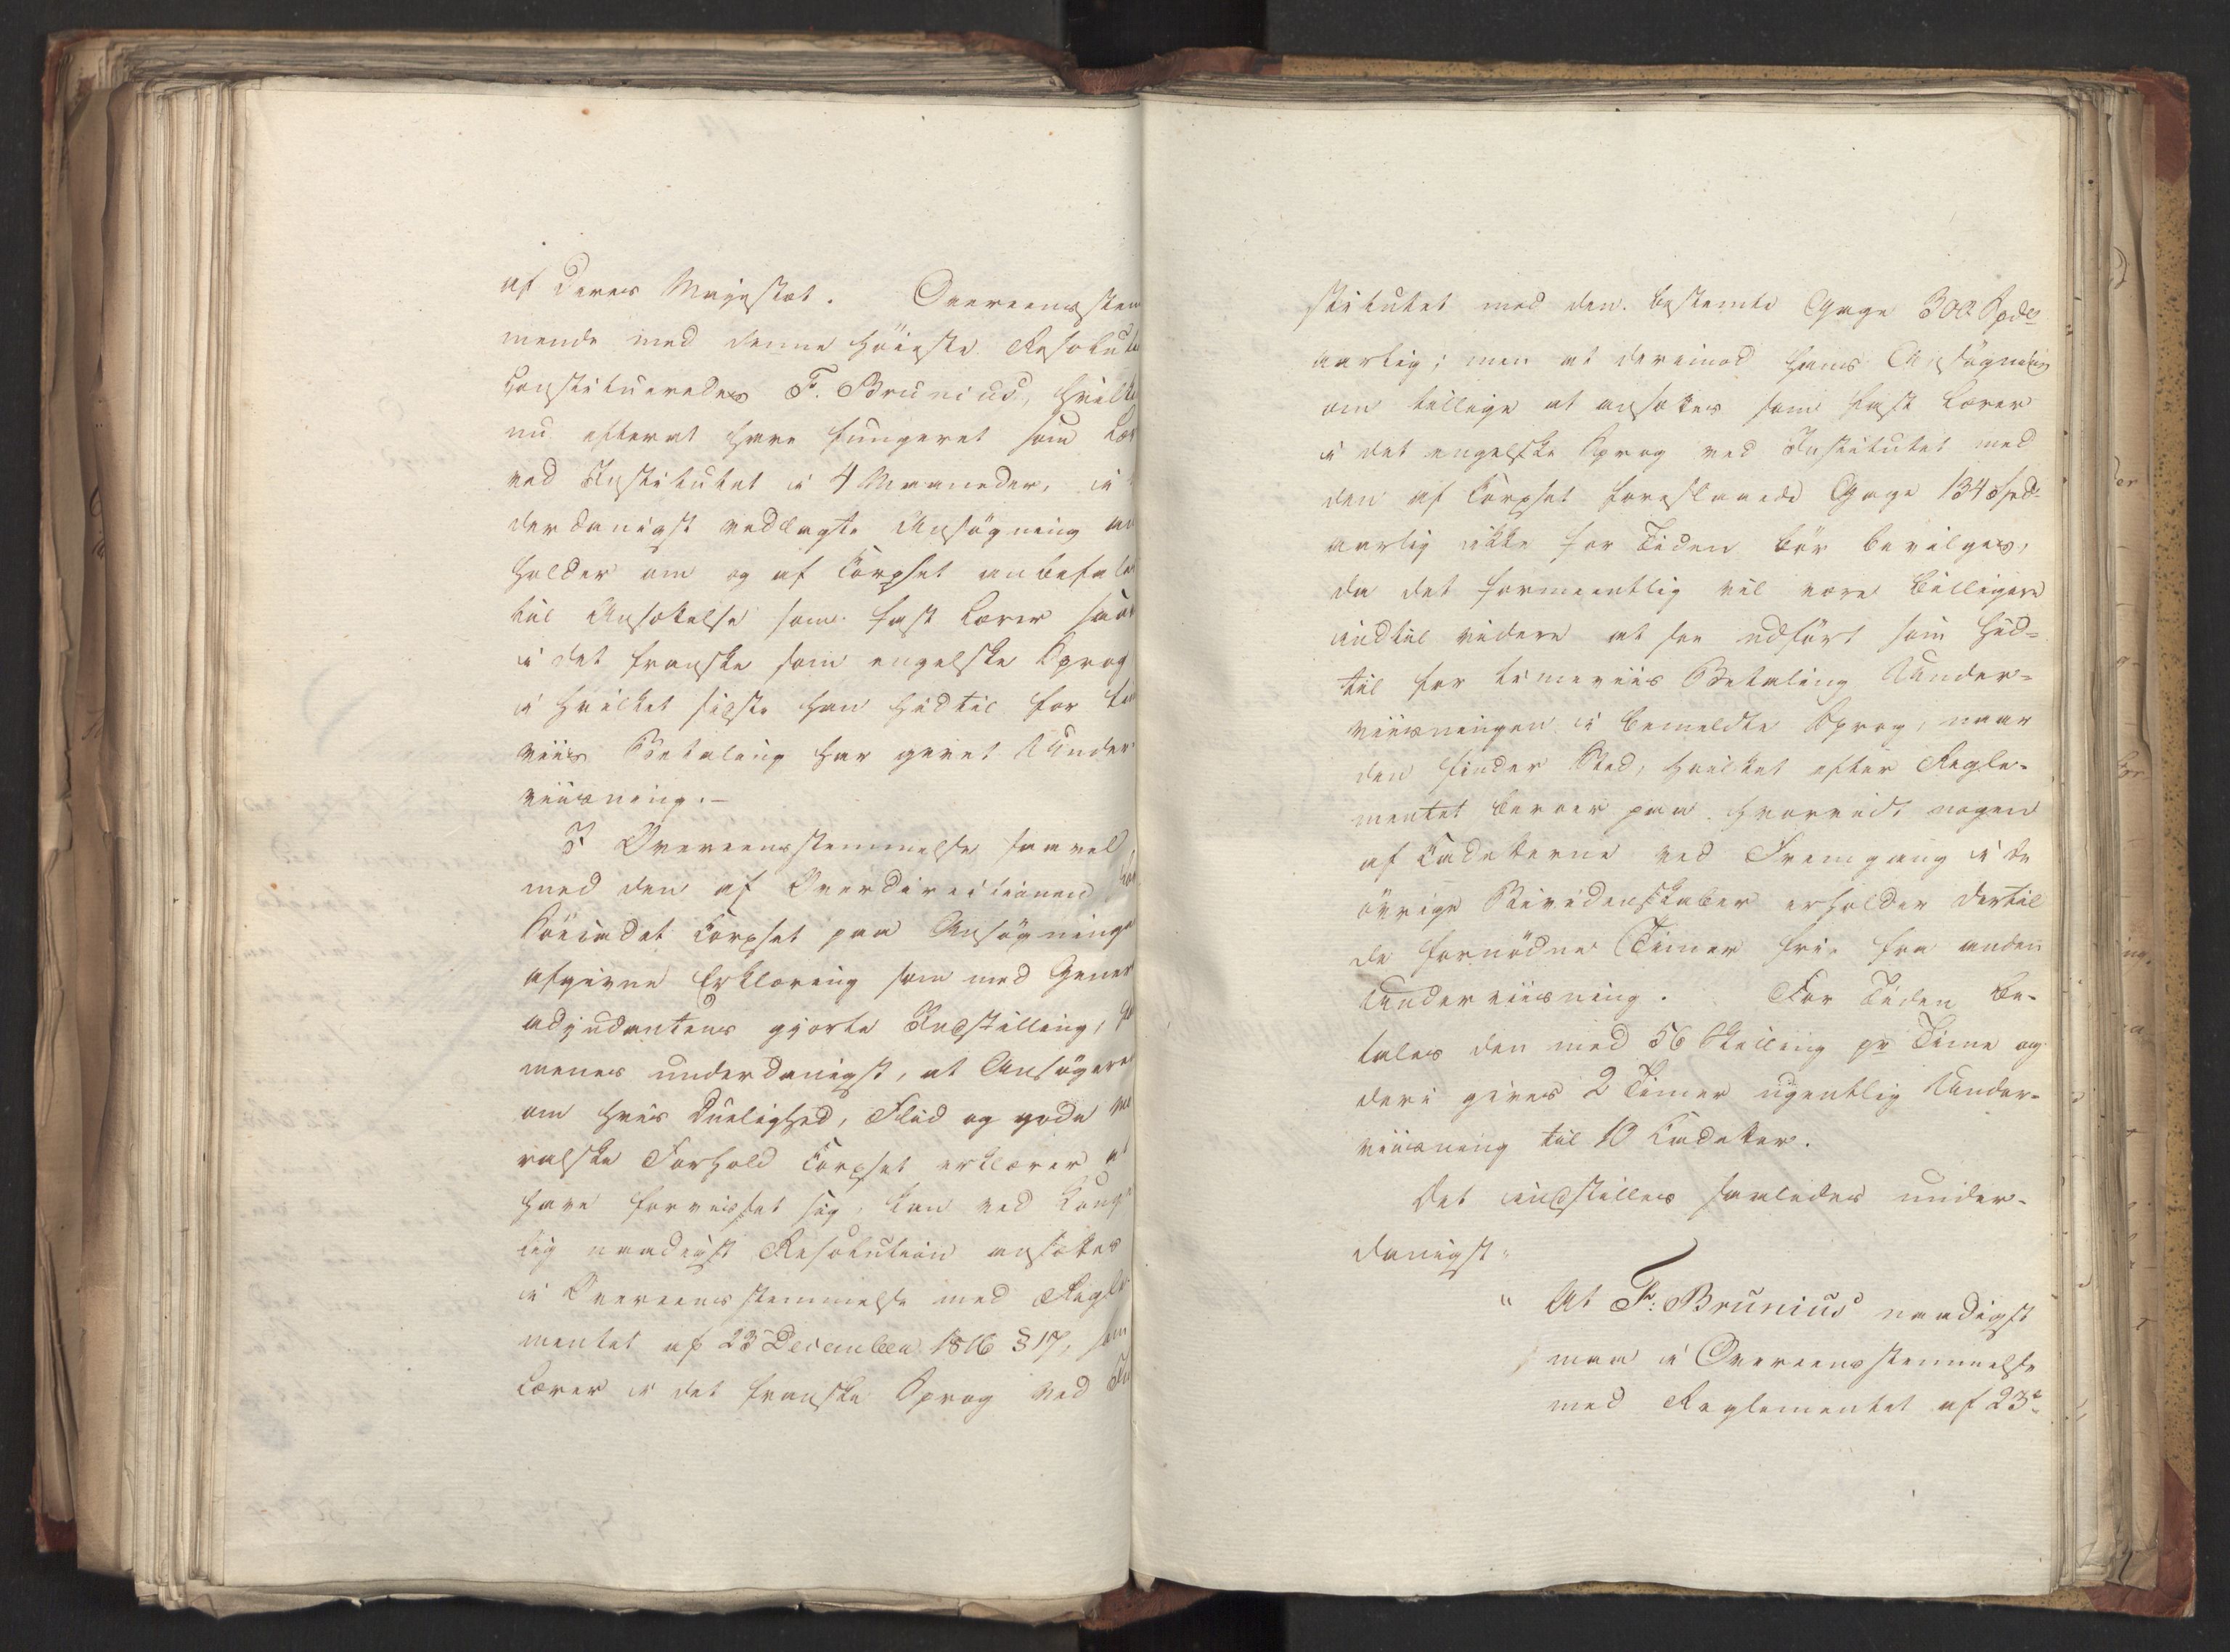 af Deres Majestæt. Overeensstem
mende med denne höieste Resoluti
constitueredes F. Brunius, hvilke
nu efterat have fungeret som Lær
ved Institutet i 4 Maaneder, i
derdanigst vedlagte Ansögning an
holder om og af Corpset anbefales
til Ansættelse som fast Lærer saav
i det franske som engelske Sprog
i hvilket sidste han hidtil for tim
viis Betaling har givet Under
viisning.-
I Overeensstemmelse saavel
med den af Overdirectionen for
Söecadet Corpset paa Ansögninge
afgivne Erklæring som med Gener
adjudantens gjorte Indstilling,
menes underdanigst, at Ansögere
om hvis Duelighed, Flid og gode mo
ralske Forhold Corpset erklærer at
have forvisset sig, kan ved Konge
lig naadigst Resolution ansættes
i Overeensstemmelse med Regle
mentet af 23 December 1816 § 17, som
Lærer i det franske Sprog ved In
stitutet med den bestemte Gage 300 Spd
aarlig; men at derimod hans Ansögning
om tillige at ansættes som fast Lærer
i det engelske Sprog ved Institutet med
den af Corpset foreslaaede Gage 134 Spd
aarlig ikke for Tiden bör bevilges,
da det formeentlig vil være billigere
indtil videre at see udfört som hid=
til for timeviis Betaling Under=
viisningen i bemeldte Sprog, naar
den finder Sted, hvilket efter Regle-
mentet beroer paa hvorvidt nogen
af Cadetterne ved Fremgang i de
övrige Videnskaber erholder dertil
de fornödne Timer fri fra anden
Underviisning. For Tiden be-
tales den med 56 Skilling pr Time og
deri gives 2 Timer ugentlig Under-
viisning til 10 Cadetter.
Det indstilles saaledes under-
danigst:
" At F: Brunius naadigst
maa i Overeensstemmelse
med Reglementet af 23de